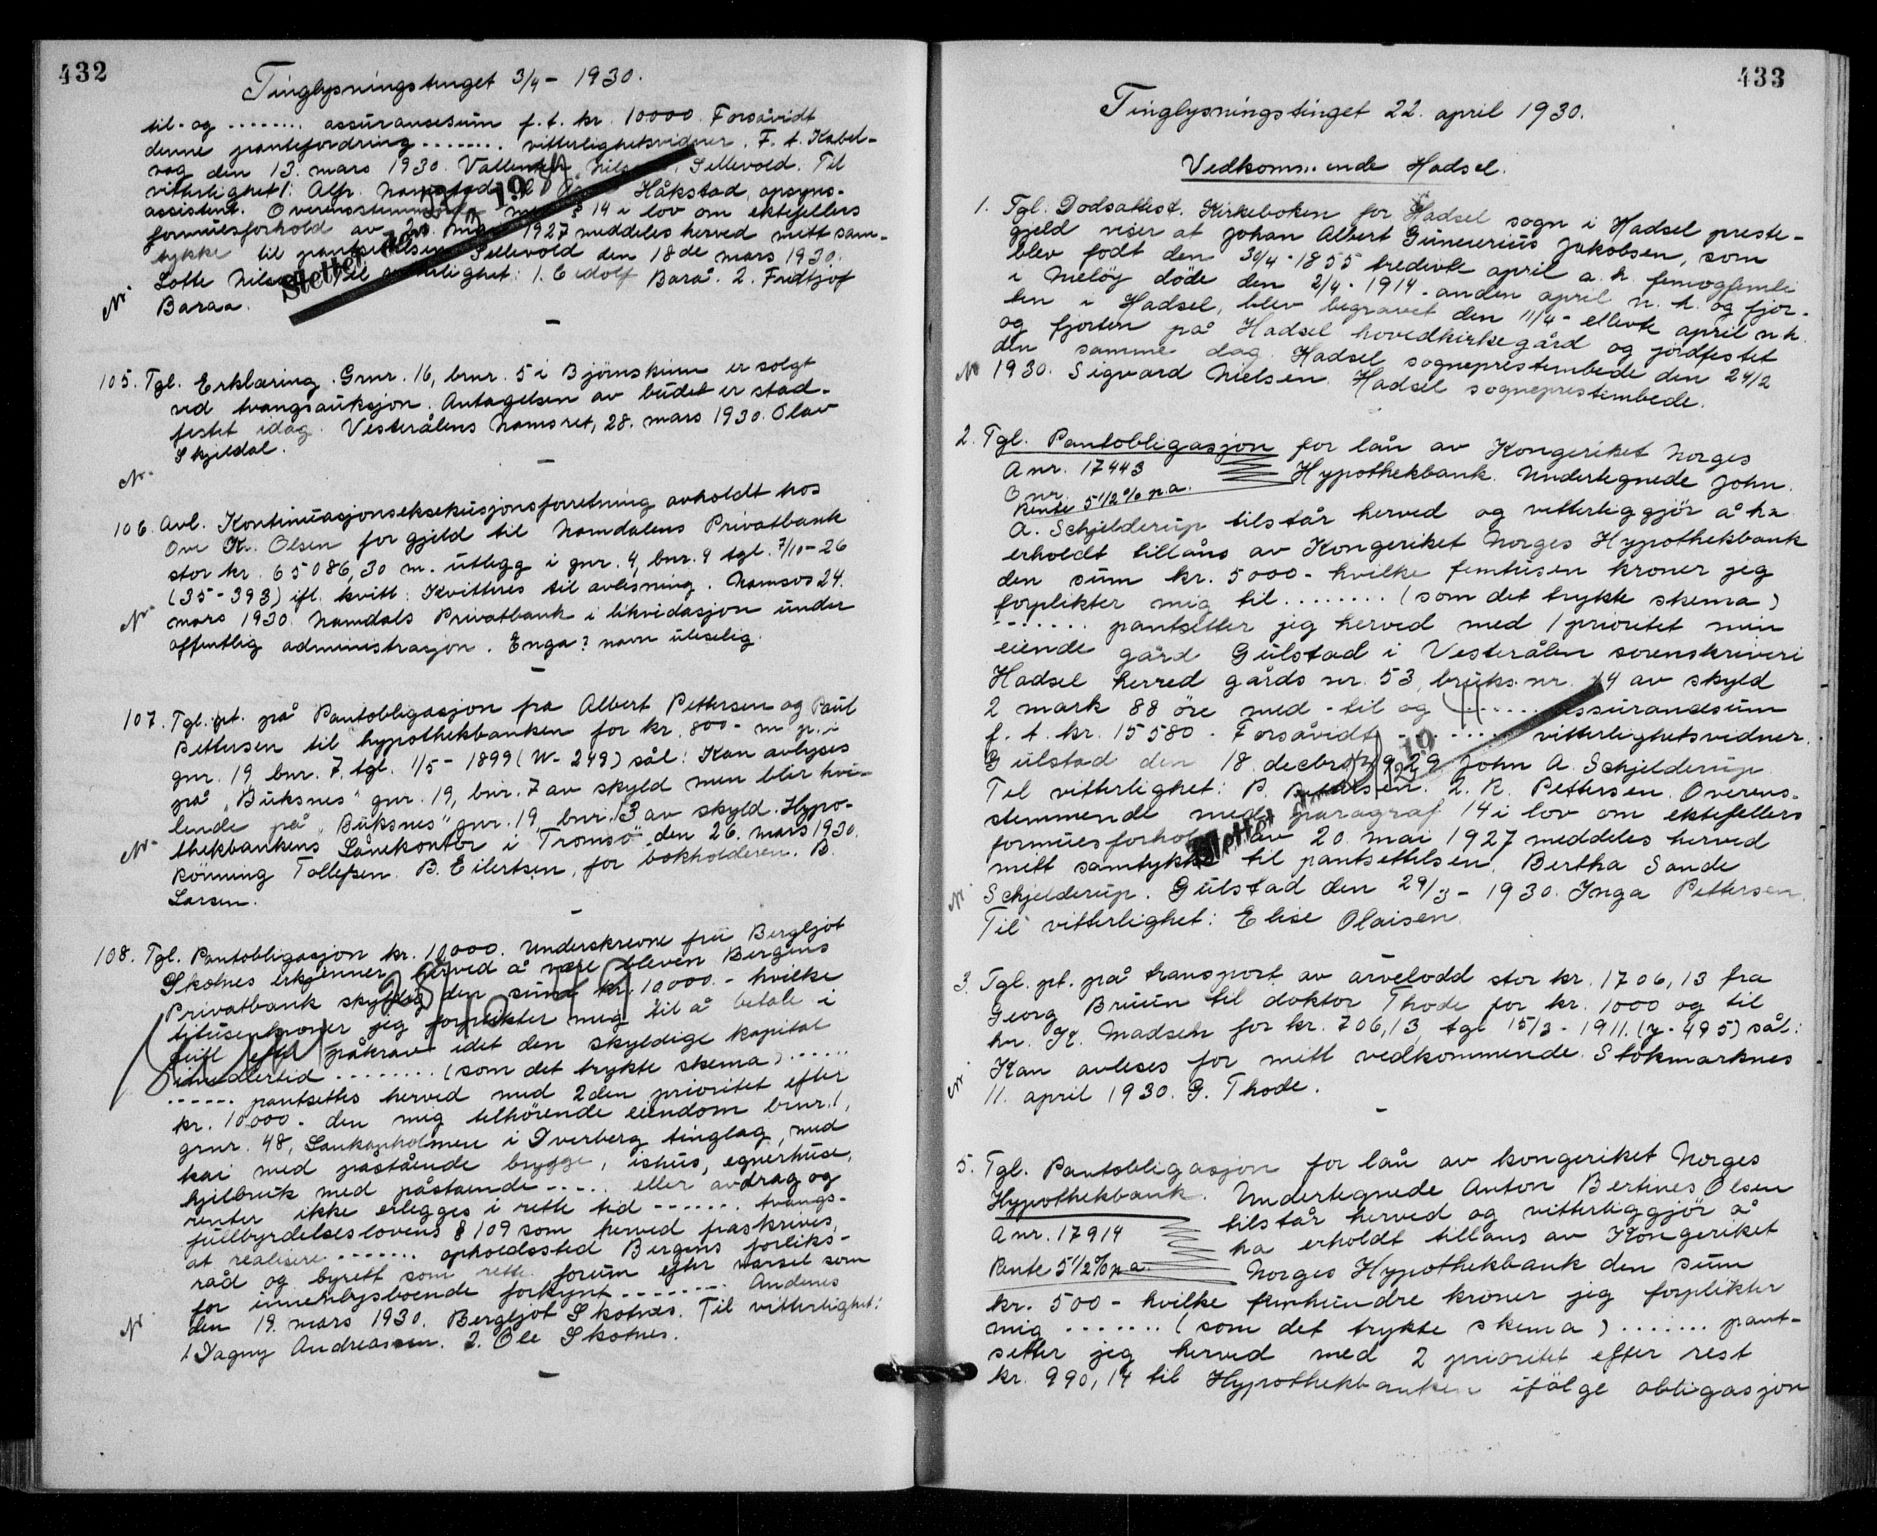 432
Tinglysningstinget 3/4 - 1930.
til og ........ assuransesum f.t. kr. 10000. Forsåvidt
denne pantefordring ........ vitterlighetsvidner. F. t. Kabel-
våg den 13. mars 1930. Nilsen, Sellevold. Til
vitterlighet 1. Alf. Håkstad, opsyns-
assistent. Overensstemmende med § 14 i lov om ektefellers
formuesforhold av 20 mai 1927 meddeles herved mitt sam-
tykke til pantsettelsen. Sellevold den 18de mars 1930.
Lotte Nilsen. Til vitterlighet: 1. Eidolf Barå. 2. Fridtjof
Baraa.
Slettet
105. Tgl. Erklæring. Grnr. 16, brnr. 5 i Björnskinn er solgt
ved tvangsauksjon. Antagelsen av budet er stad-
festet idag. Vesterålens Namsret, 28. mars 1930. Olav
Skjeldal.
106. Avl. Kontinuasjonseksekusjonsforretning avholdt hos
Ove Kr. Olsen for gjeld til Namdalens Privatbank
stor kr. 65086,30 m. utlegg i gnr. 4, bnr. 9 tgl. 7/10-26
(35-393) ifl. kvitt: Kvitteres til avlysning. Namsos 24.
mars 1930. Namdals Privatbank i likvidasjon under
offentlig administrasjon. Enga? navn uleselig.
107. Tgl. pt. på Pantobligasjon fra Albert Pettersen og Paul
Pettersen til hypothekbanken for kr. 800- m p. i
gnr. 19 bnr. 7. tgl. 1/5-1899 (W-249) sål: Kan avlyses
på "Buksnes" gnr. 19, bnr. 7 av skyld men blir hvi-
lende på "Buksnes" gnr. 19 bnr. 13 av skyld. Hypo-
thekbankens Lånekontor i Tromsö den 26. mars 1930.
Rönning Tollefsen. B. Eilertsen, for bokholderen. B.
Larsen.
108. Tgl. Pantobligasjon kr. 10,000. Underskrevne frü Bergljot
Skotnes erkjenner herved å være bleven Bergens
Privatbank skyldig den sum kr. 10000.- hvilke
titusenkroner jeg forplikter mig til å betale i
påkrav idet den skyldige kapital
imidlertid ........ (som det trykte skema) ......
...... pantsettes herved med 2den prioritet efter
kr. 10000- den mig tilhörende eiendom brnr. 1,
grnr. 48, i Dverberg tinglag, med
kai med påstående brygge, ishus, egnerhuse,
hjelbruk med påstående ..... eller avdrag og
renter ikke erlegges i rette tid ....... tvangs-
fullbyrdelseslovens § 109 som herved fraskrives,
at realisere ....... opholdssted Bergens forliks-
råd og byrett som rette forum efter varsel som
for innenbysboende forkynt ....... Andenes
den 19. mars 1930. Bergljot Skotnes. Til vitterlighet:
1. Dagny Andreassen. 2. Ole Skotnes.
433
Tinglysningstinget 22. april 1930.
Vedkommende Hadsel.
1. Tgl. Dodsattest. Kirkeboken for Hadsel sogn i Hadsel preste-
gjeld viser at Johan Albert Gunerius Jakobsen, som
blev født den 30/4-1855 tredivte april a. h. femogfemti
i Melöy döde den 2/4-1914 anden april n. h. og fjor-
ten i Hadsel, blev begravet den 11/4- ellevte april n.h.
og fjorten på Hadsel hovedkirkegård og jordfestet
den samme dag. Hadsel sogneprestembede den 24/2
1930. Sigvard Nielsen. Hadsel sogneprestembede.
2. Tgl. Pantobligasjon for lån av Kongeriket Norges
A nr. 17443 Hypothekbank. Undertegnede John
O nr.
Rente 5 1/2 % p.a.
A. Schjelderup tilstår herved og vitterliggjör å ha
erholdt tillåns av Kongeriket Norges Hypothekbank
den sum kr. 5000- hvilke femtusen kroner jeg
forplikter mig til ........ (som det trykte skema)
....... pantsetter jeg herved med 1 prioritet min
eiende gård Gulstad i Vesterålen sorenskriveri
Hadsel herred gårds nr. 53, bruks nr. 14 av skyld
2 mark 88 öre med - til og ....... assuransesum
f. t. kr. 15580. Forsåvidt ........ vitterlighetsvidner.
Gulstad den 18. decbr. 1929 John A. Schjelderup
Til vitterlighet: P. Pettersen. 2. R. Pettersen. Overens-
stemmende med paragraf 14 i lov om ektefellers
formuesforhold av 20. mai 1927 meddeles herved
mitt samtykke til pantsettelsen. Bertha Sande
Schjelderup. Gulstad den 29/3-1930. Inga Pettersen.
Til vitterlighet: Elise Olaisen
3. Tgl. pt. på transport av arvelodd stor kr. 1706,13 fra
Georg Bruun til doktor Thode for kr. 1000 og til
hr. Madsen for kr. 706,13 tgl 15/3-1911. (y-495) sål:
Kan avleses for mitt vedkommende. Stokmarknes
11. april 1930. G. Thode.
5. Tgl. Pantobligasjon for lån av kongeriket Norges
Hypothekbank. Undertegnede Anton Bertines Olsen
tilstår herved og vitterliggjör å
A nr. 17914 ha erholdt tillåns av Kongeriket
Rente 5 1/2 % p a. Norges Hypothekbank den sum
kr. 500- hvilke femhundre kroner jeg forplikter
mig ....... (som det trykte skema) ....... pant-
setter jeg herved med 2 prioritet efter rest
kr. 990,14 til Hypothekbanken ifölge obligasjon